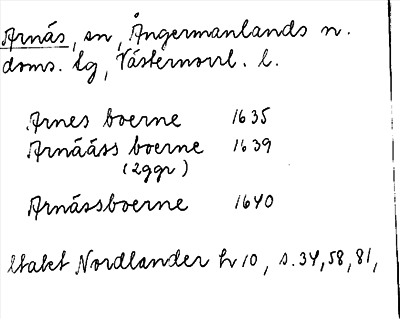 Arnäs, sn, Ångermanlands n.
doms. lg, Västernorrl. l.
Arnes boerne 1635
Arnääss boerne 1639
(2ggr)
Arnässboerne 1640
Nordlander h 10, s. 34, 58, 81,